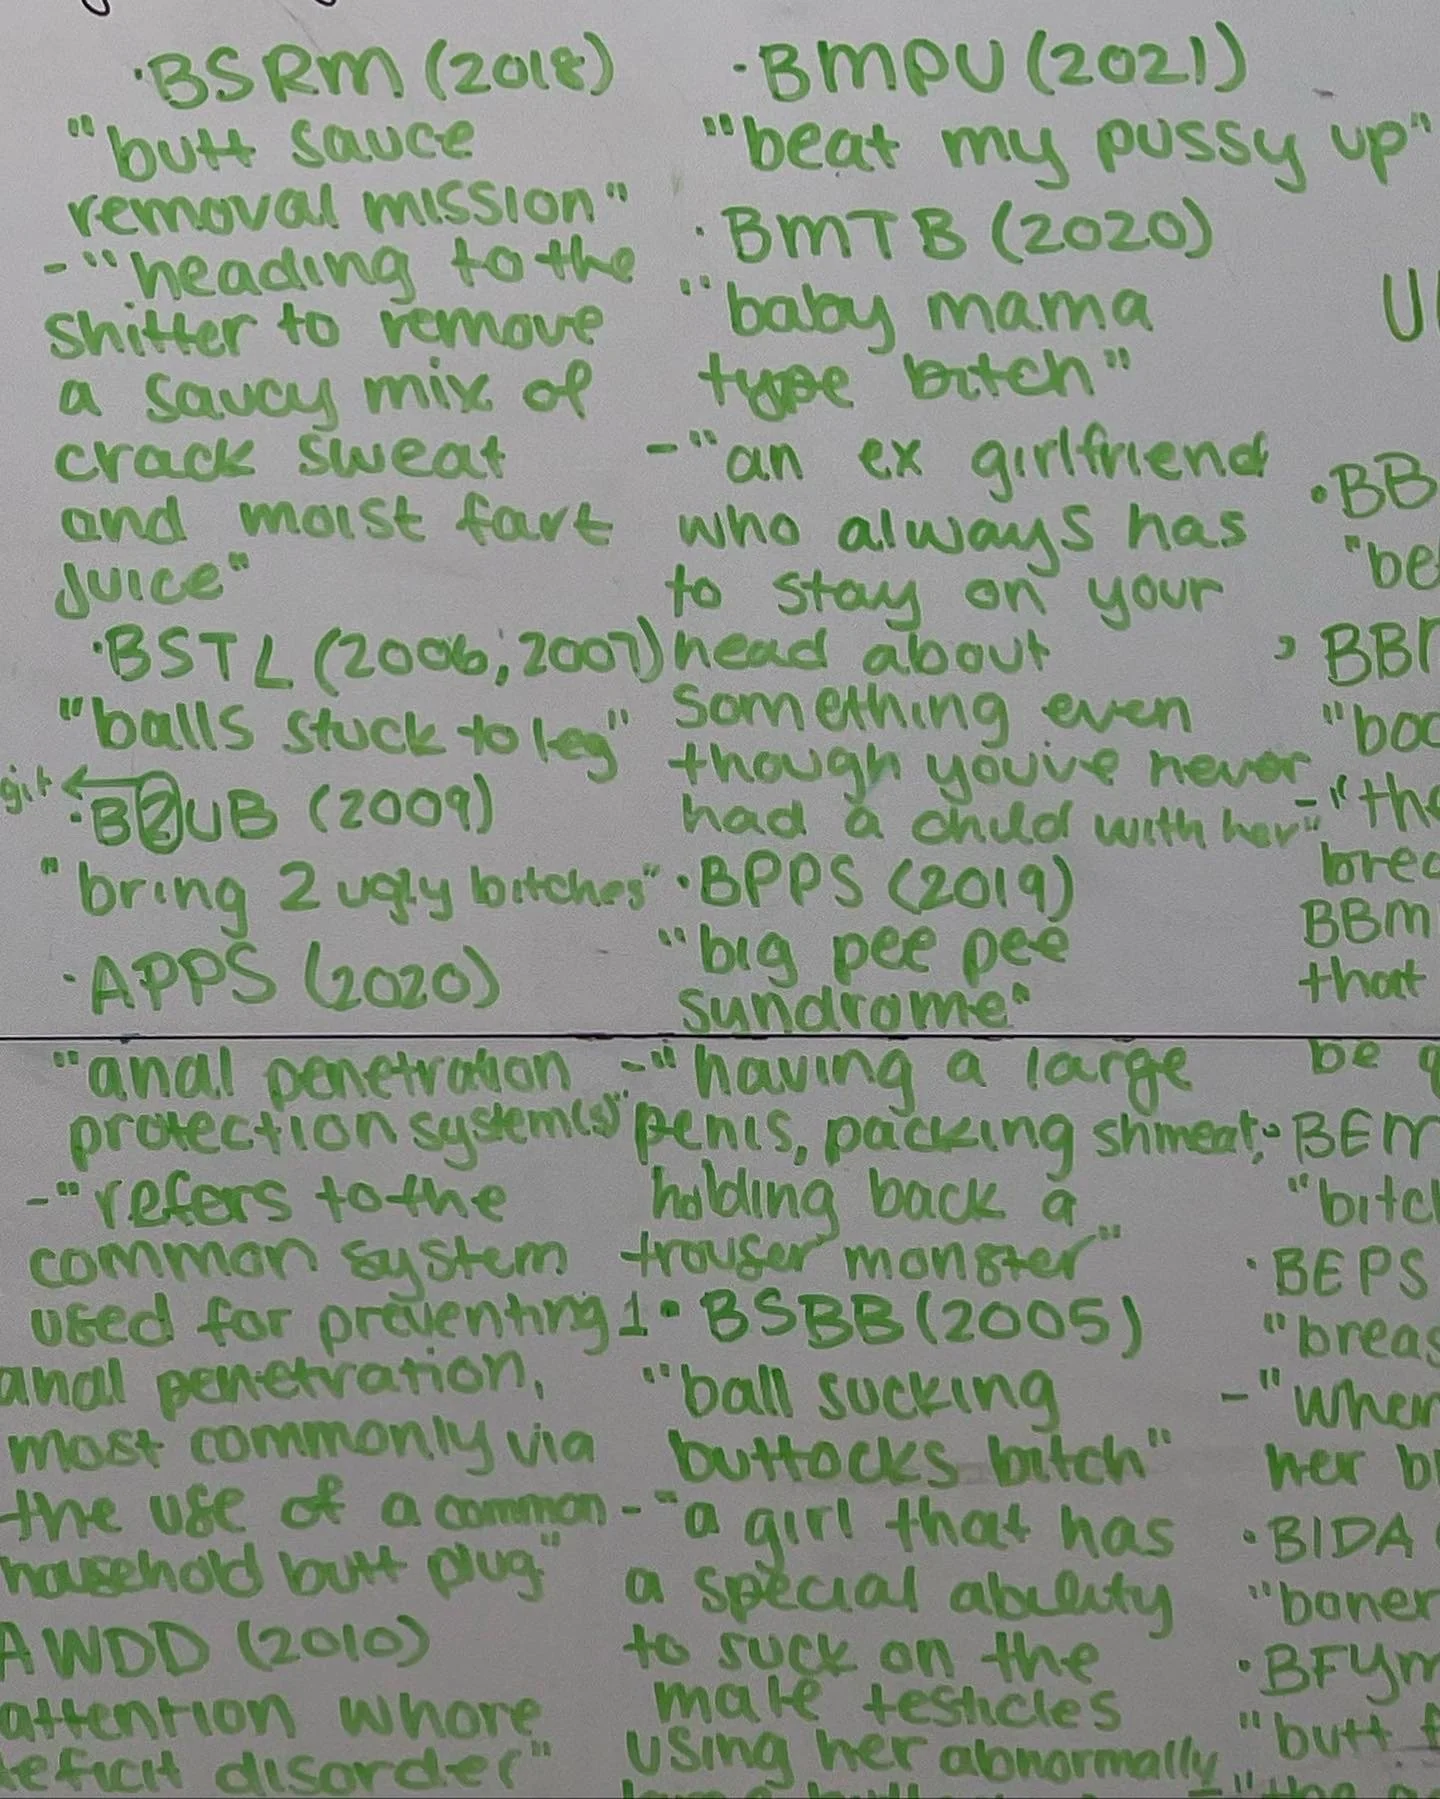 ·BSRM (2018)
"butt sauce
removal mission"
-"heading to the
shitter to remove
a saucy mix of
crack sweat
and moist fart
juice"
·BSTL (2006, 2007)
"balls stuck to leg"
git
·B2UB (2009)
"bring 2 ugly bitches"
·APPS (2020)
"anal penetration
protection system(s)"
-"refers to the
common system
used for preventing
anal penetration,
most commonly via
the use of a common
household butt plug"
AWDD (2010)
attention whore
deficit disorder"
·BMPU (2021)
"beat my pussy up"
·BMTB (2020)
"baby mama
type bitch"
-"an ex girlfriend
who always has
to stay on your
head about
something even
though you've never
had a child with her"
·BPPS (2019)
"big pee pee
syndrome"
-"having a large
penis, packing shmeat,
holding back a
trouser monster"
1·BSBB (2005)
"ball sucking
buttocks bitch"
-"a girl that has
a special ability
to suck on the
male testicles
using her abnormally
U
·BB
"be
BB
"boo
-"the
brea
BBM
that
be
·BEM
"bitch
·BEPS
"breas
-"when
her b
·BIDA
"boner
·BFYM
"butt f